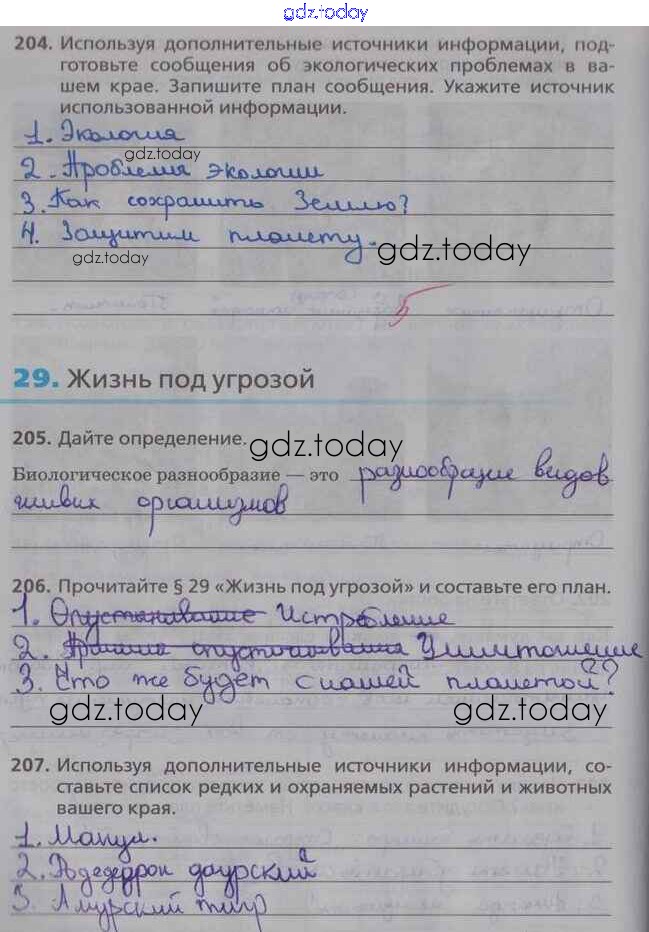 gdz.today
204. Используя дополнительные источники информации, под-
готовьте сообщения об экологических проблемах в ва-
шем крае. Запишите план сообщения. Укажите источник
использованной информации.
1. Экология
gdz.today
2. Проблемы экологии
3. Как сохранить Землю?
4. Защитим планету.
gdz.today
gdz.today
5
29. Жизнь под угрозой
205. Дайте определение.
gdz.today
Биологическое разнообразие — это разнообразие видов
живых организмов
206. Прочитайте § 29 «Жизнь под угрозой» и составьте его план.
1. Опустынивание Истребление
2. опустынивания Уничтожение
3. Что же будет с нашей планетой?
gdz.today
gdz.today
207. Используя дополнительные источники информации, со-
ставьте список редких и охраняемых растений и животных
вашего края.
1. Манул.
2. даурский
3. Амурский тигр